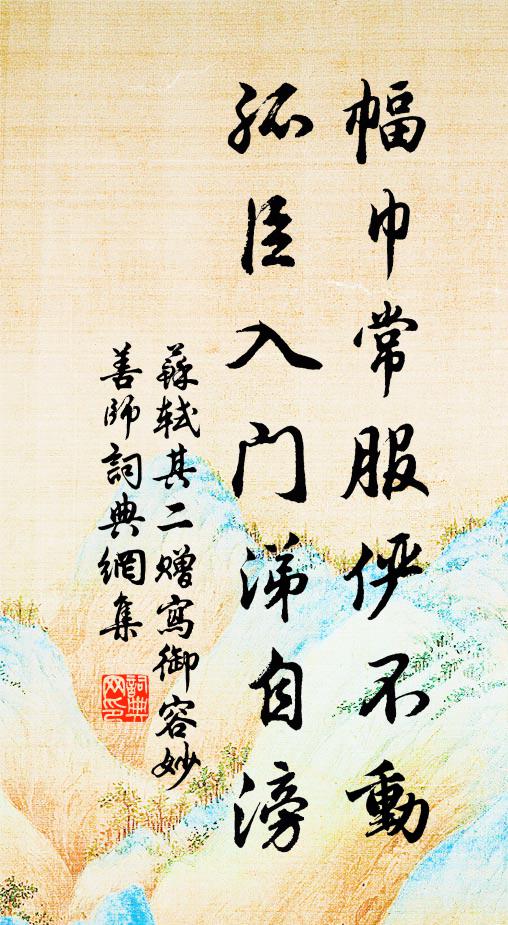 幅巾常服俨不動
孤臣入门涕自滂
蘇軾其二赠寫御容妙
善师詞典網集
詞典网印